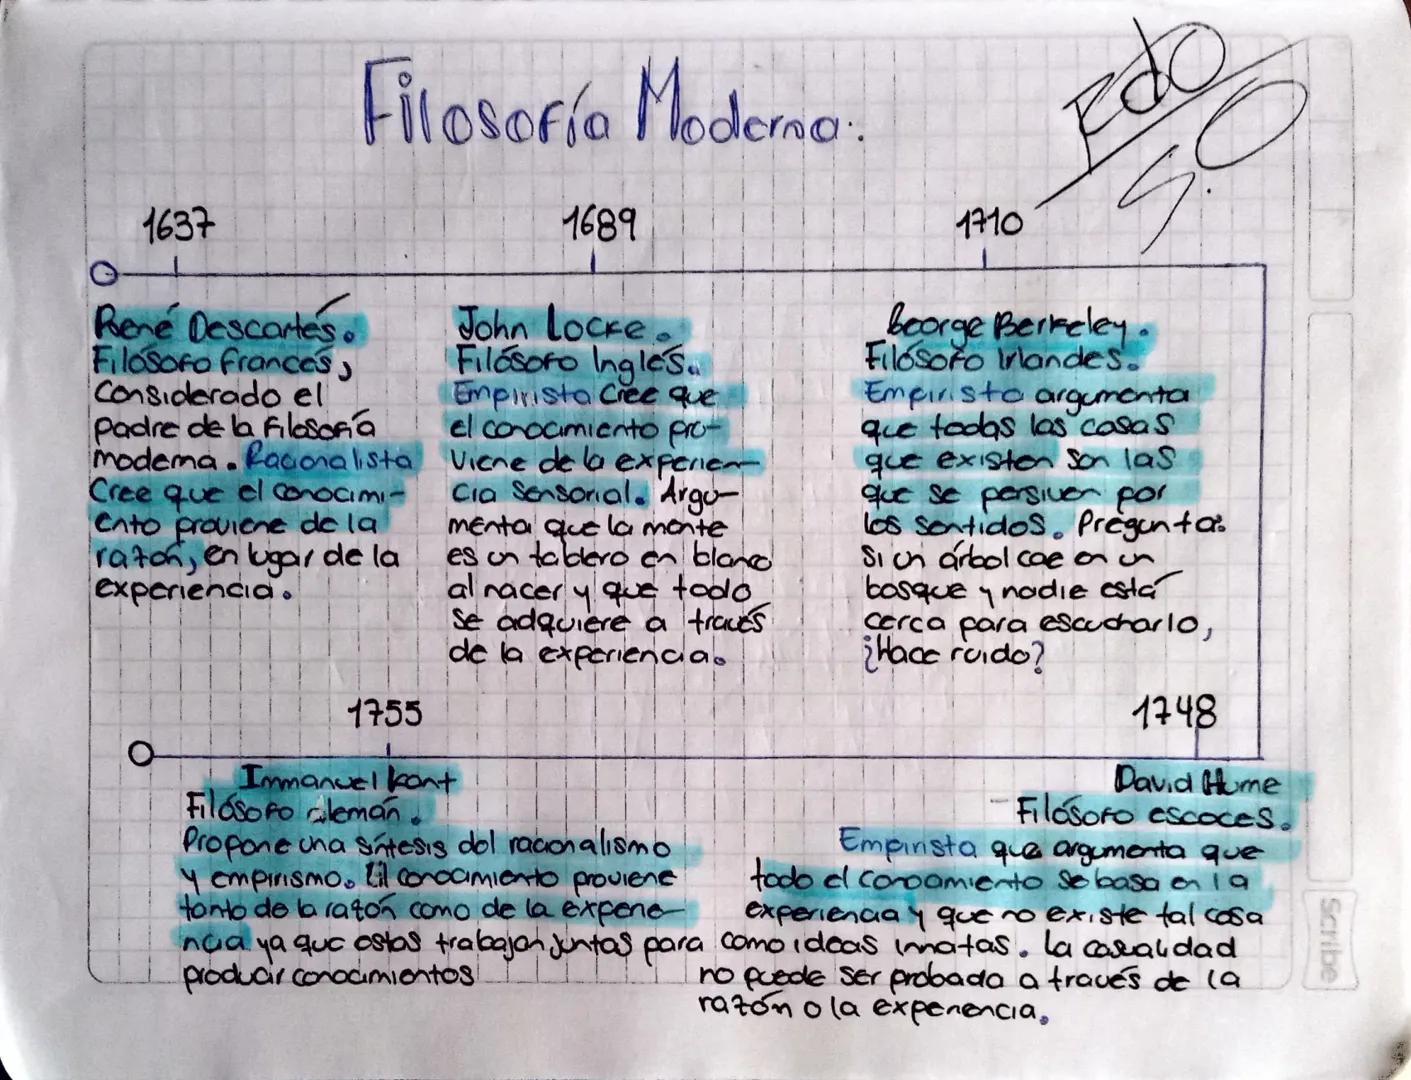 Filosofía Moderna.
Edo
S.O
1637
1689
1710
René Descartes.
Filósofo francés,
Considerado el
padre de la filosofía
moderna. Racionalista
Cree que el conocimi-
ento proviene de la
razón, en lugar de la
experiencia.
John Locke.
Filósofo Inglés.
Empirista Cree que
el conocimiento pro-
viene de la experien-
cia Sensorial. Argu-
menta que la mente
es un tablero en blanco
al nacer y que todo
se adquiere a través
de la experiencia.
George Berkeley.
Filósofo Irlandes.
Empirista argumenta
que todas las cosas
que existen son las
que se persiven por
los sentidos. Pregunta:
Si un árbol cae en un
bosque y nadie está
cerca para escucharlo,
¿Hace ruido?
1755
1748
Immanuel Kant
Filósofo alemán.
Propone una síntesis del racionalismo
y empirismo. El conocimiento proviene
tanto de la razón como de la experie-
ncia ya que estas trabajan juntas para
producir conocimientos
David Hume
Filósofo escoces.
Empirista que argumenta que
todo el conocimiento se basa en la
experiencia y que no existe tal cosa
como ideas innatas. La casualidad
no puede ser probada a través de la
razón o la experiencia.
Scribe